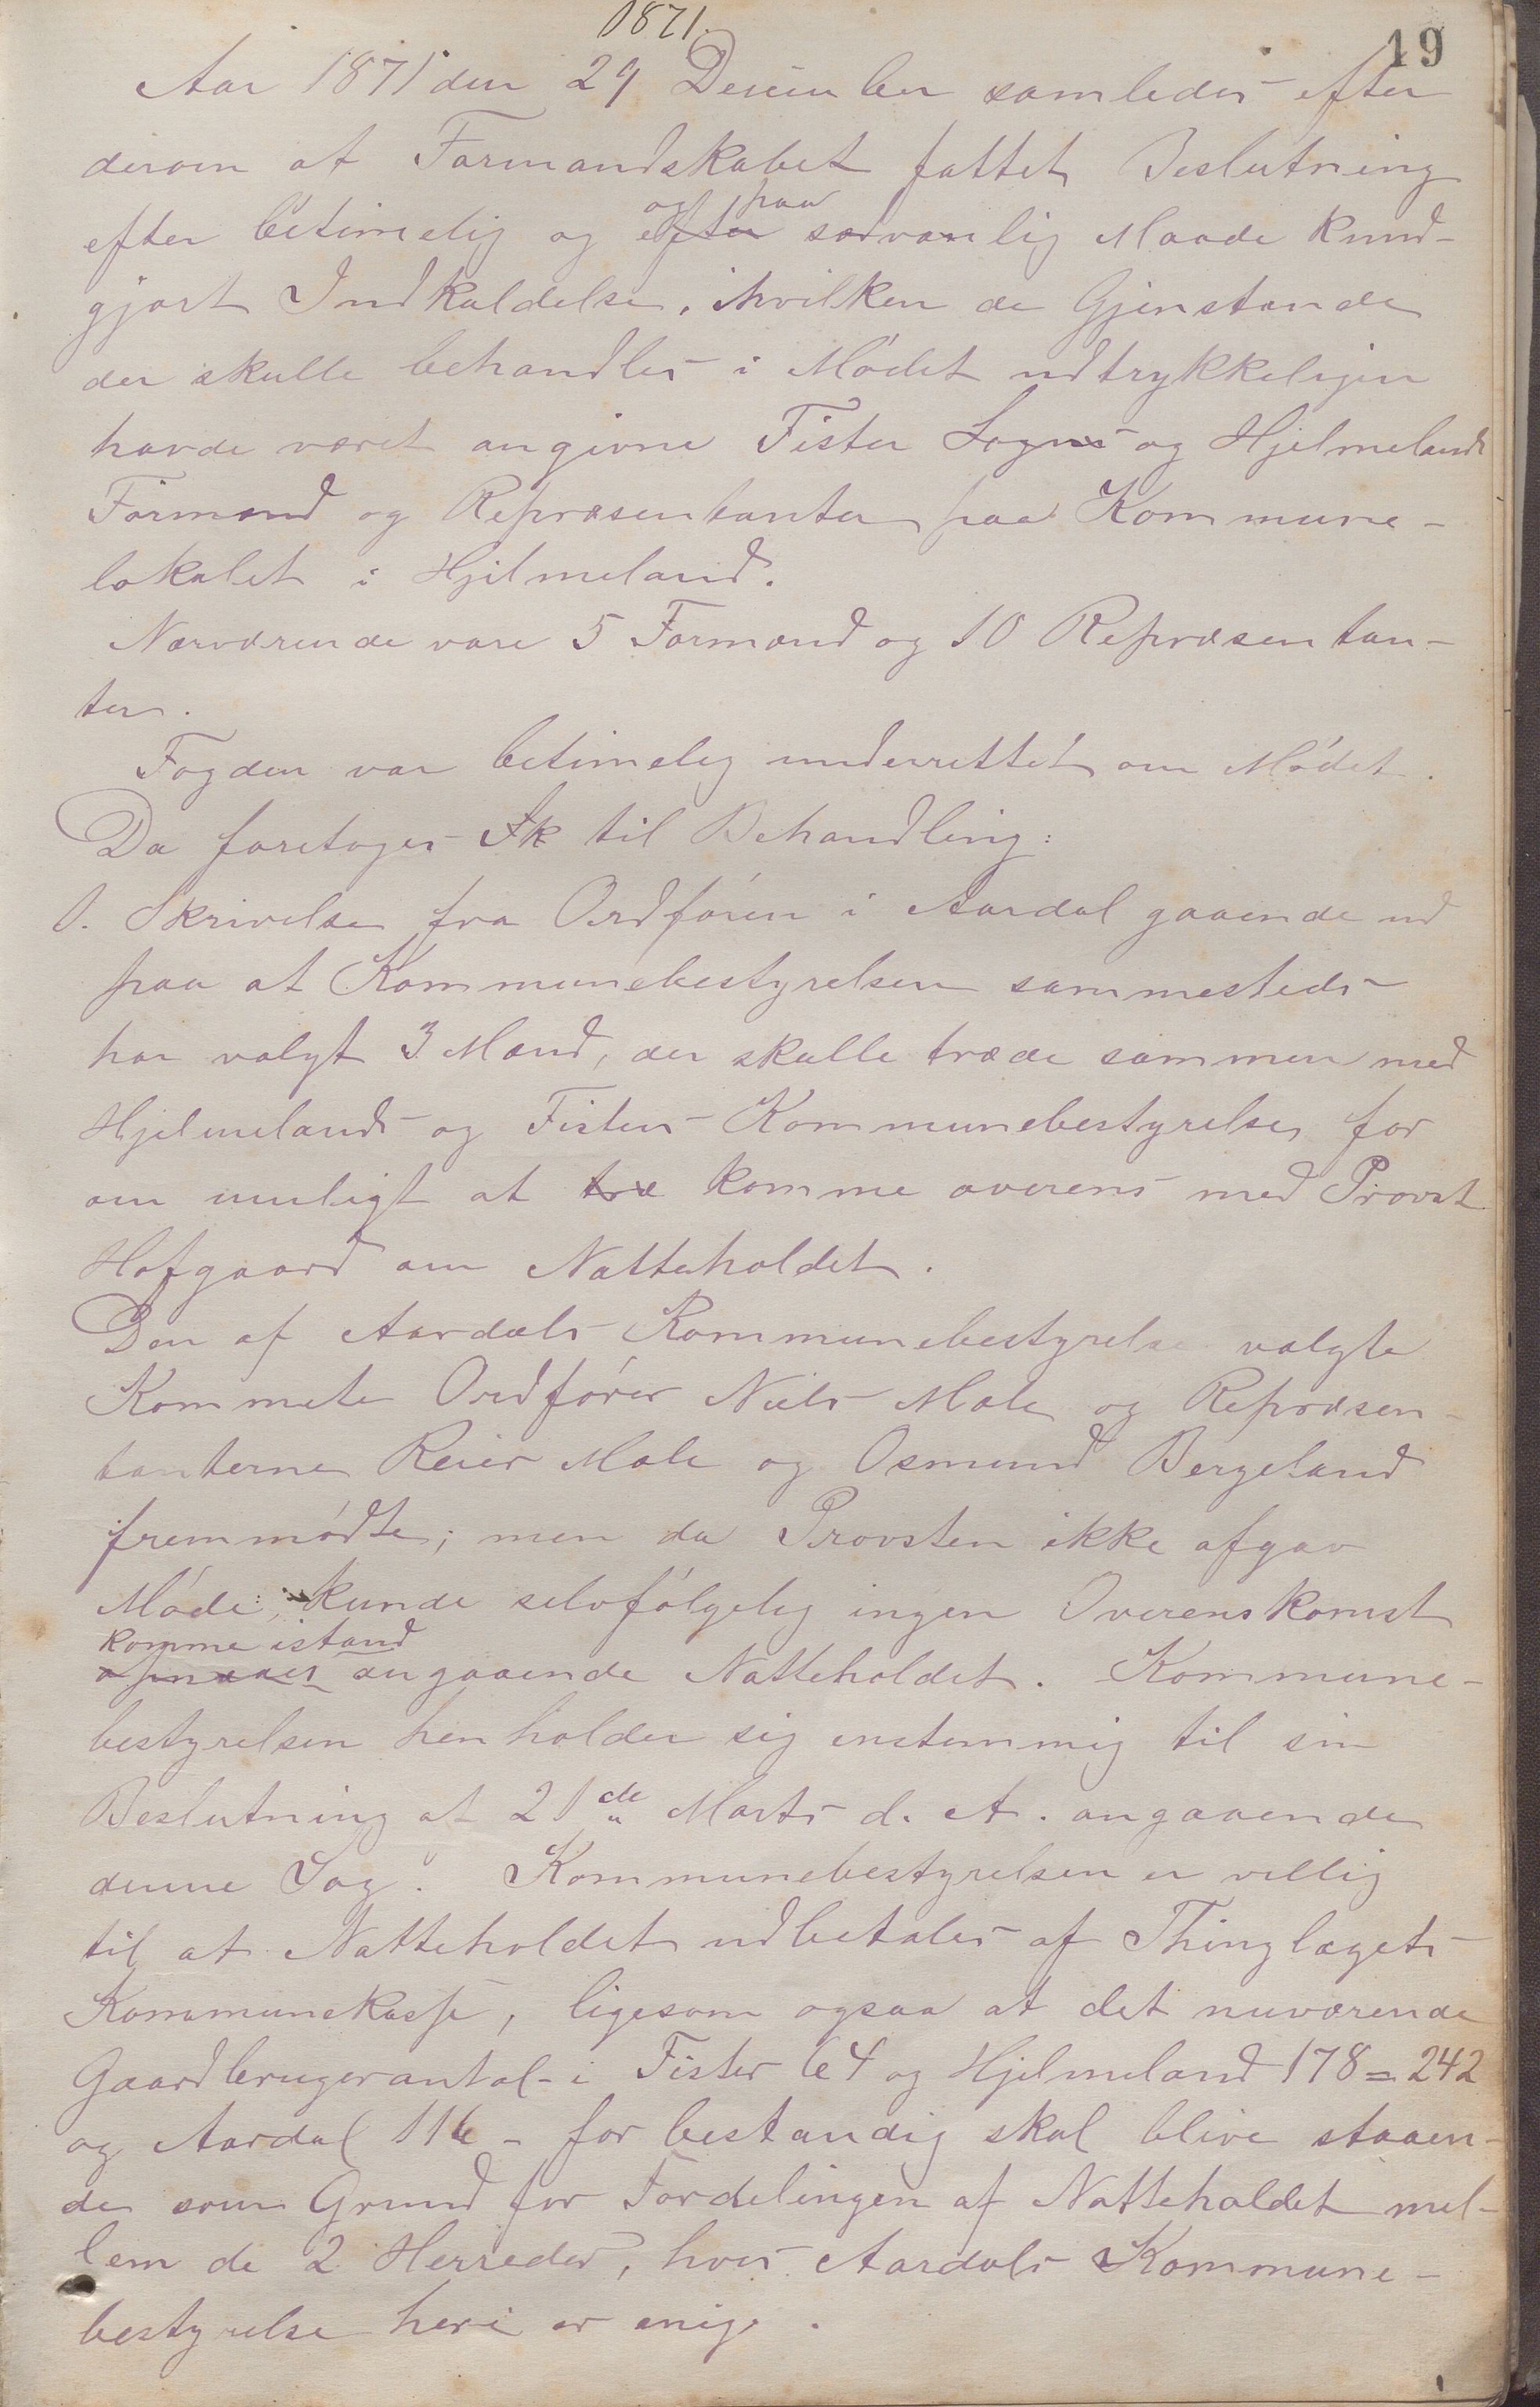 1871.
19
Aar 1871 den 29 December samledes efter
derom af Formandskabet fattet Beslutning
efter betimelig og efter og paa sædvanlig Maade kund-
gjort Indkaldelse, ihvilken de Gjenstande
der skulle behandles i Mødet udtrykkeligen
havde været angivne Fister Sogns og Hjelmelands
Formænd og Repræsentanter paa Kommune-
lokalet i Hjelmeland.
Nærværende vare 5 Formænd og 10 Repræsentan-
ter.
Fogden var betimelig underrettet om Mødet.
Da foretoges Sk til Behandling:
1. Skrivelse fra Ordføren i Aardal gaaende ud
paa at Kommunebestyrelsen sammesteds
har valgt 3 Mænd, der skulle træde sammen med
Hjelmelands og Fisters Kommunebestyrelse for
om muligt at træ komme overens med Provst
Hofgaard om Natteholdet.
Den af Aardals Kommunebestyrelse valgte
Kommete Ordfører Niels Mæle og Repræsen-
tanterne Reier Mæle og Osmund Bergeland
fremmødte; men da Provsten ikke afgav
Møde, kunde selvfølgelig ingen Overenskomst
komme istand
opnaaes angaaende Natteholdet. Kommune-
bestyrelsen henholder sig enstemmig til sin
Beslutning af 21de Marts d. A. angaaende
denne Sag. Kommunebestyrelsen er villig
til at Natteholdet udbetales af Thinglagets
Kommunekasse, ligesom ogsaa at det nuværende
Gaardbrugerantal i Fister 64 og Hjelmeland 178 = 242
og Aardal 116 - for bestandig skal blive staaen-
de som Grund for Fordelingen af Natteholdet mel-
lem de 2 Herreder, hvis Aardals Kommune-
bestyrelse heri er enig.